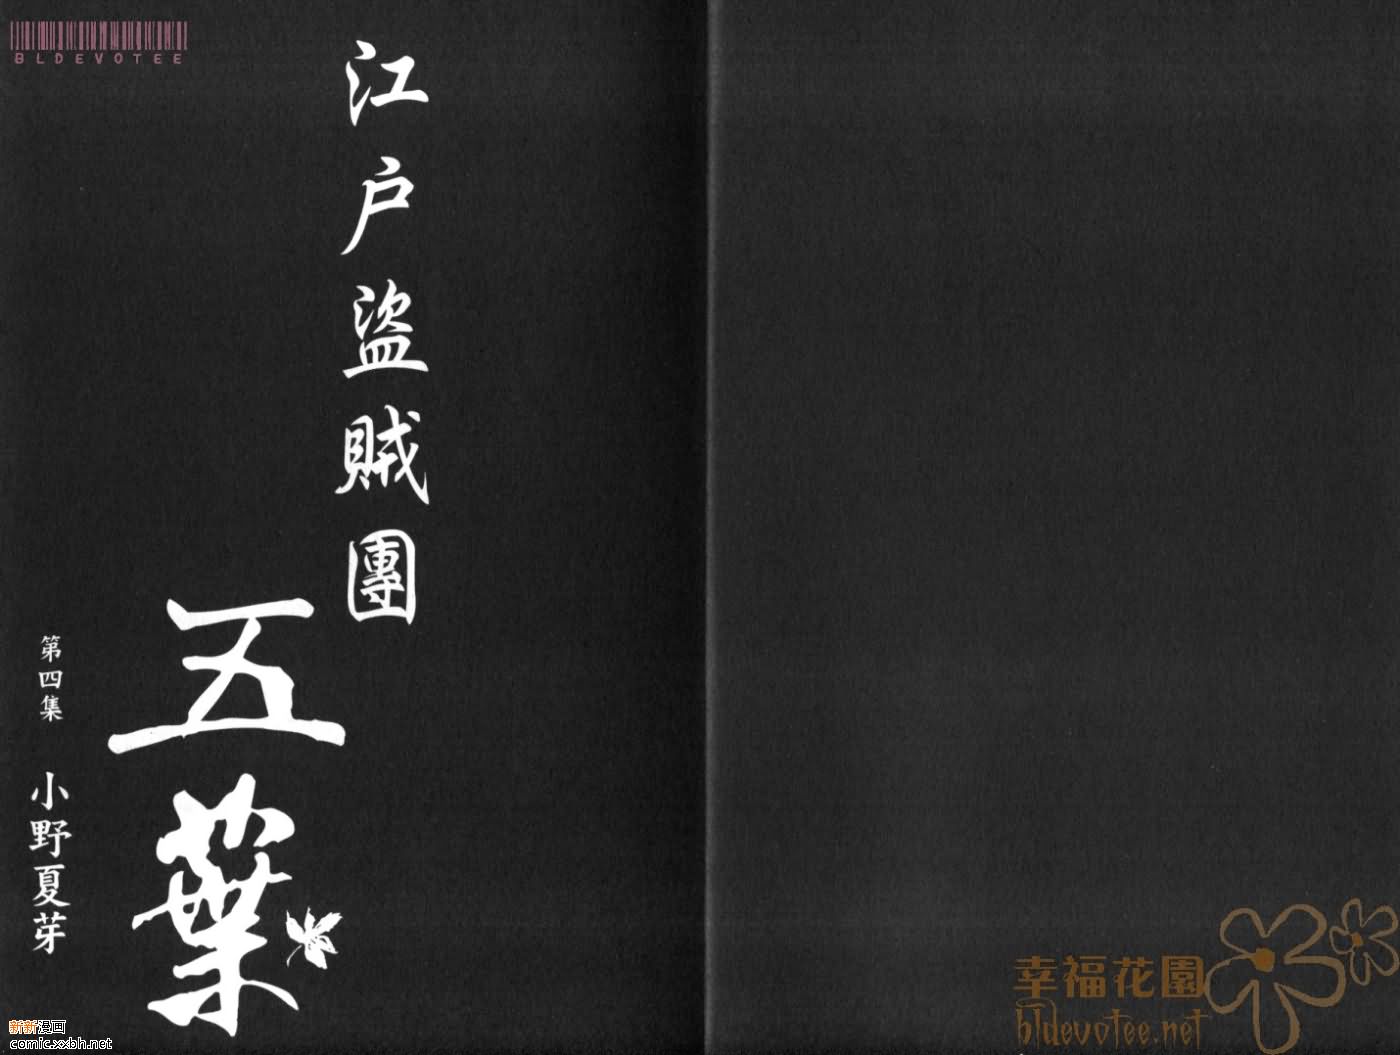 BLDEVOTEE
江户盜賊團
五葉
第四集
小野夏芽
幸福花園
bldevotee.net
新新漫画
comic.xxbh.net